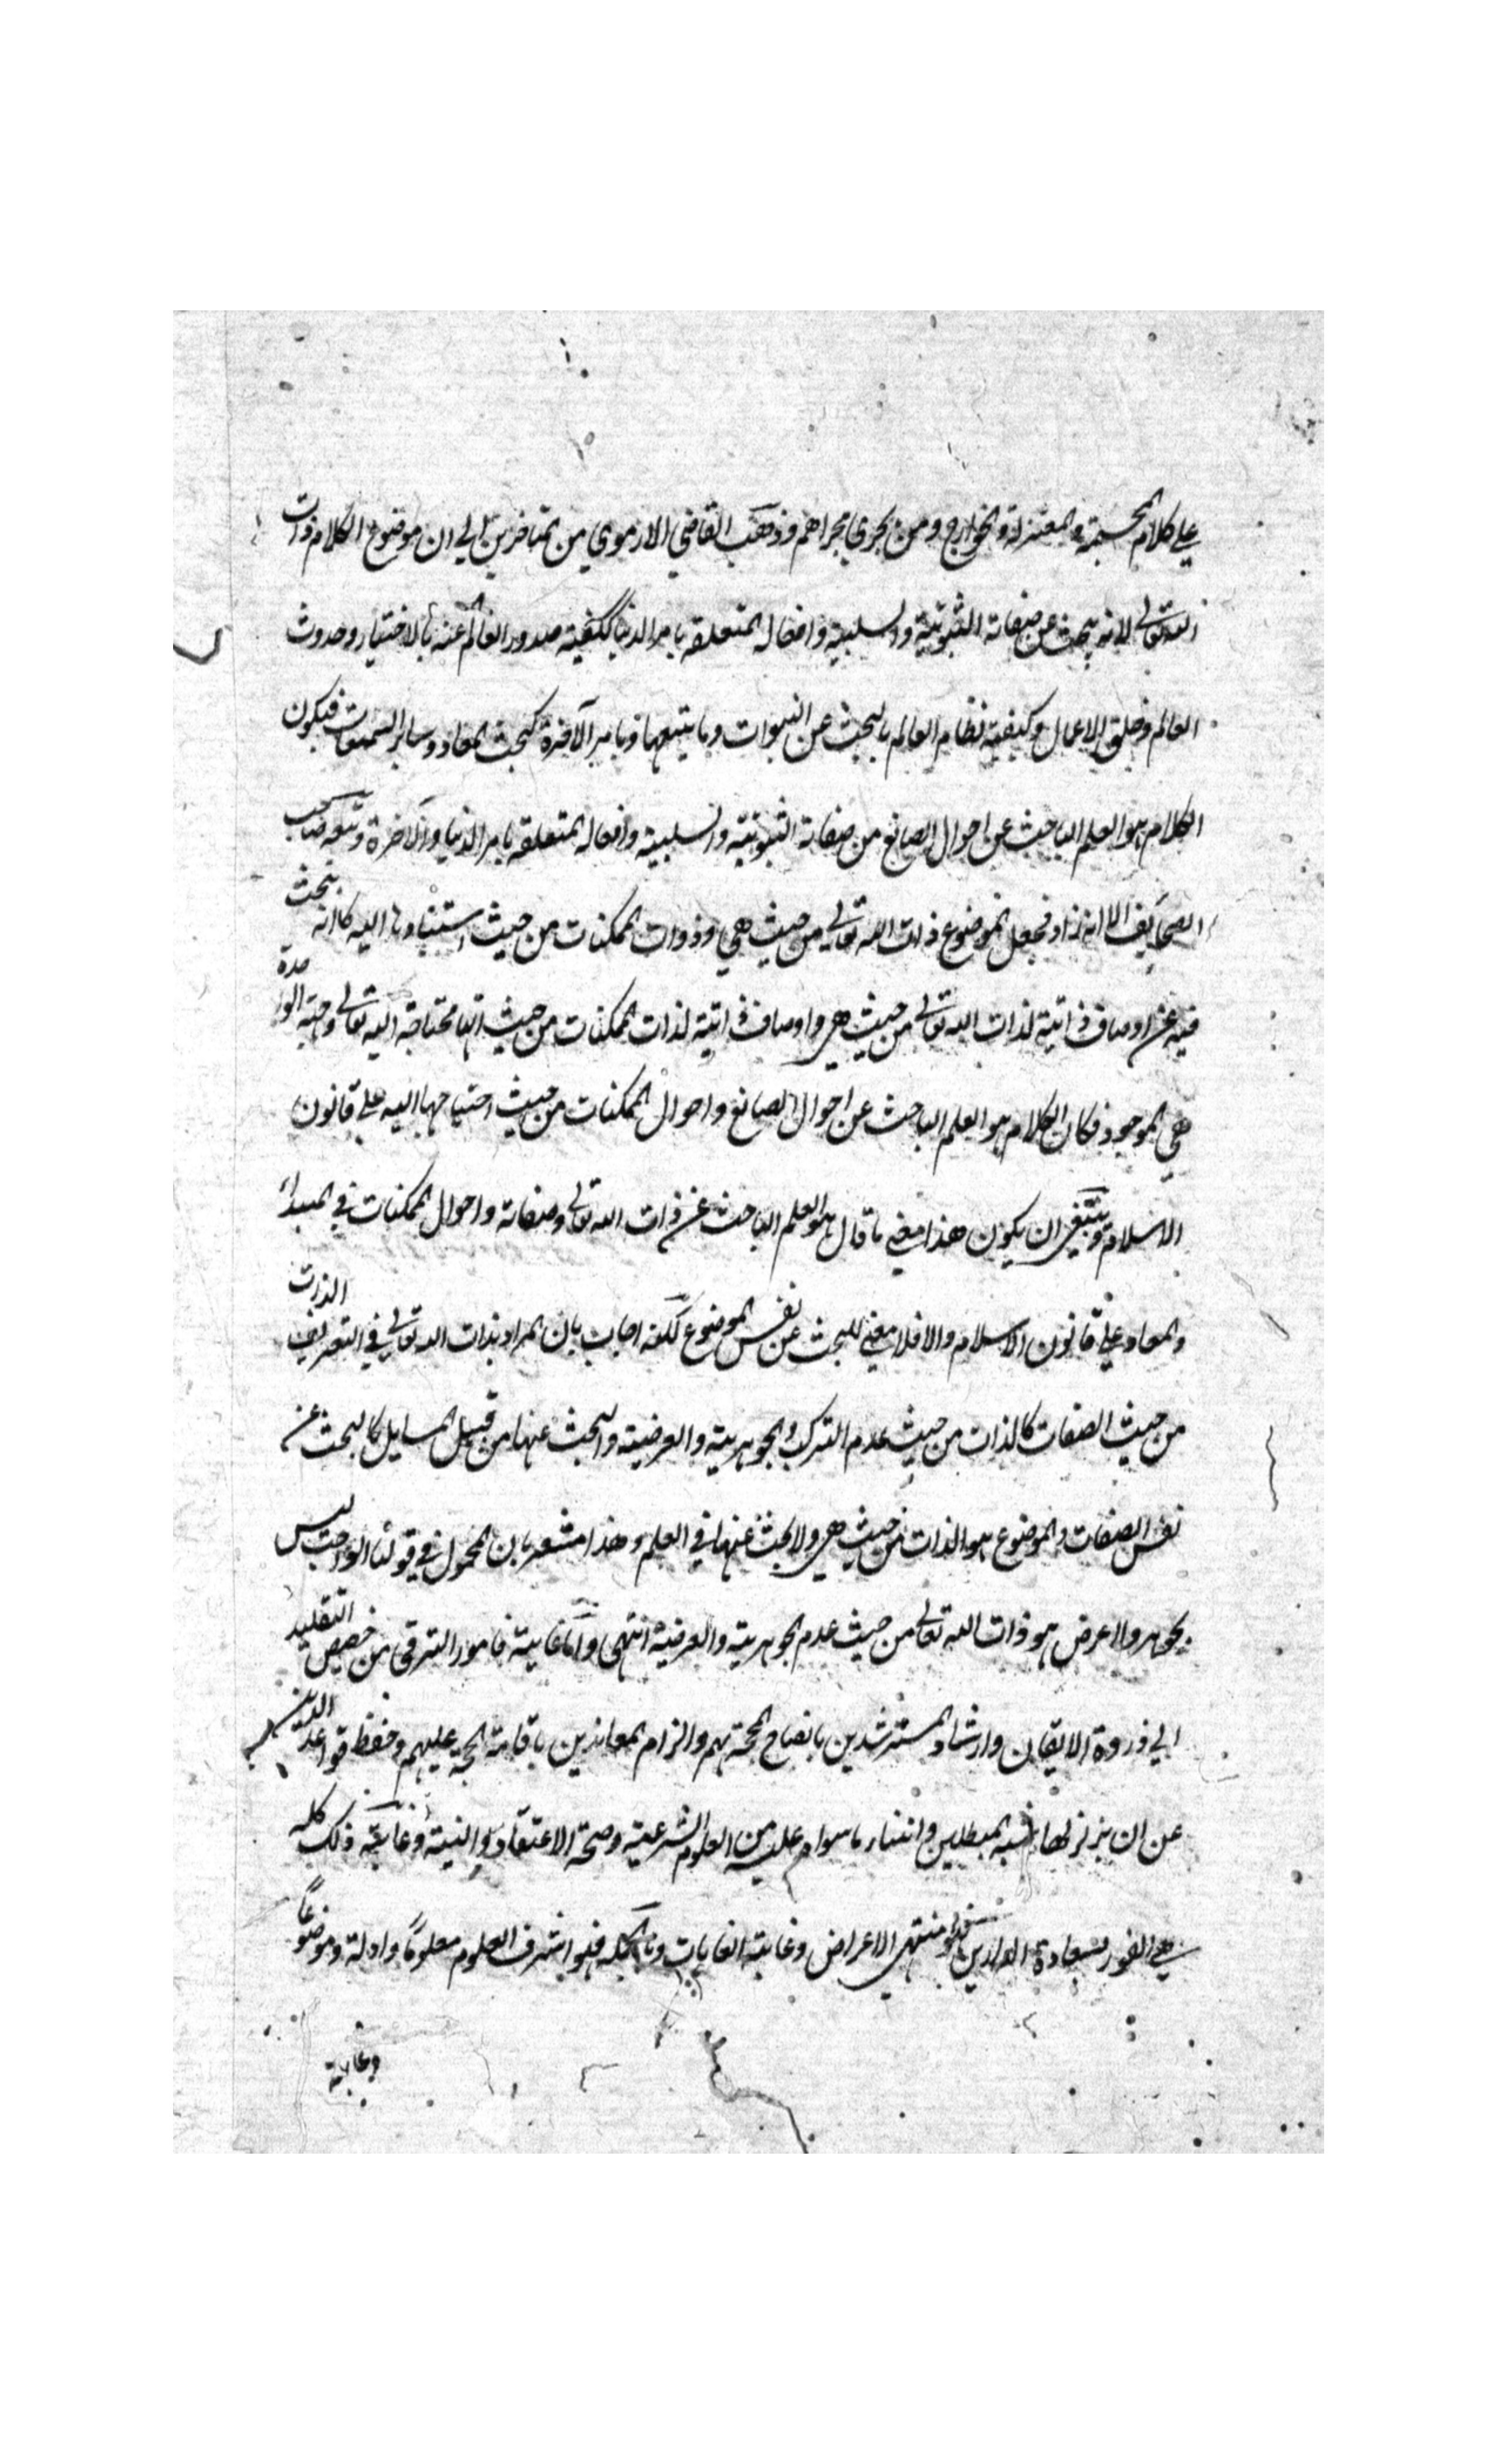 على كلام المجسمة والمعتزلة والخوارج ومن يجري مجراهم وذهب القاضي الارموي من المتاخرين الى ان موضوع الكلام ذات
الله تعالى لانه يبحث عن صفاته الثبوتية والسلبية وافعاله المتعلقة بامر الدنيا ككيفية صدور العالم عنه بالاختيار وحدوث
العالم وخلق الاعمال وكيفية نظام العالم بالبحث عن النبوات وما يتبعها وبامر الآخرة كبحث المعاد وسائر السمعيات فيكون
الكلام هو العلم الباحث عن احوال الصانع من صفاته الثبوتية والسلبية وافعاله المتعلقة بامر الدنيا والآخرة وتبعه صاحب
الصحايف الا انه زاد فجعل الموضوع ذات الله تعالى من حيث هي وذوات الممكنات من حيث استنادها اليه لما انه يبحث
فيه عن اوصاف ذاتية لذات الله تعالى من حيث هي واوصاف ذاتية لذات الممكنات من حيث انها محتاجة اليه تعالى وجهة الوحدة
هي الموجود فكان الكلام هو العلم الباحث عن احوال الصانع واحوال الممكنات من حيث احتياجها اليه على قانون
الاسلام وينبغي ان يكون هذا معنى ما قال هو العلم الباحث عن ذات الله تعالى وصفاته واحوال الممكنات في المبدأ
والمعاد على قانون الاسلام والا فلا معنى للبحث عن نفس الموضوع لكنه اجاب بان المراد بذات الله تعالى في التعريف الذات
من حيث الصفات كالذات من حيث عدم التركب والجوهرية والعرضية والبحث عنها من قبيل المسايل كالبحث عن
نفس الصفات والموضوع هو الذات من حيث هي ولا بحث عنها في العلم وهذا مشعر بان المحمول في قولنا الواجب ليس
بجوهر ولا عرض هو ذات الله تعالى من حيث عدم الجوهرية والعرضية انتهى واما غايته فامور الترقي من حضيض التقليد
الى ذروة الايقان وارشاد المسترشدين بايضاح المحجة لهم والزام المعاندين باقامة الحجة عليهم وحفظ قواعد الدين
عن ان يزلزلها شبه المبطلين وابتناء ما سواه عليه من العلوم الشرعية وصحة الاعتقاد والنية وغاية ذلك كله
هي الفوز بسعادة الدارين فهو منتهى الاغراض وغاية الغايات وبالجملة فهو اشرف العلوم معلوما وادلة وموضوعا
وغاية